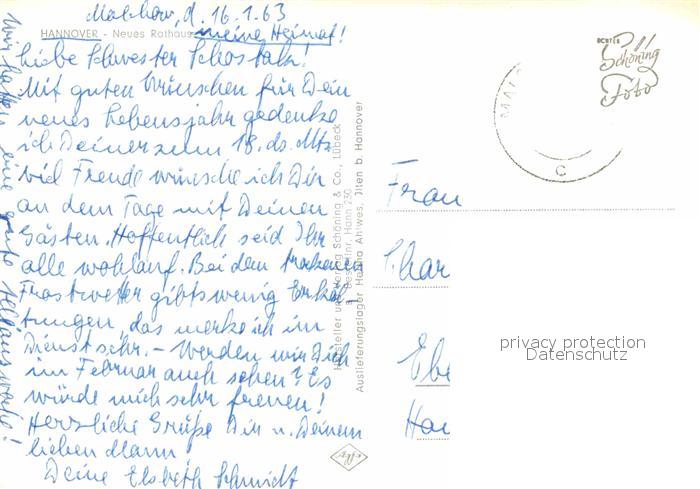 Malchow, d. 16.1.63
HANNOVER - Neues Rathaus
meine Heimat!
Liebe Schwester Schostak!
Mit guten Wünschen für Dein
neues Lebensjahr gedenke
ich Deiner zum 18. ds. Mts.
Viel Freude wünsche ich Dir
an dem Tage mit Deinen
Gästen. Hoffentlich seid Ihr
alle wohlauf. Bei dem trockenen
Frostwetter gibts wenig Erkäl-
tungen, das merke ich im
Dienst sehr. - Werden wir Dich
im Februar auch sehen? Es
würde mich sehr freuen!
Herzliche Grüße Dir u. Deinem
lieben Mann
Deine Elsbeth Schmidt
Wir hatten eine gute
Hersteller und Verlag Schöning & Co., Lübeck
Bestellnr. Hann 230
Auslieferungslager Hanna Ahlwes, Ilten b. Hannover
ECHTES
Schöning
Foto
MA
C
Frau
Char
Ebe
Han
privacy protection
Datenschutz
Agfa